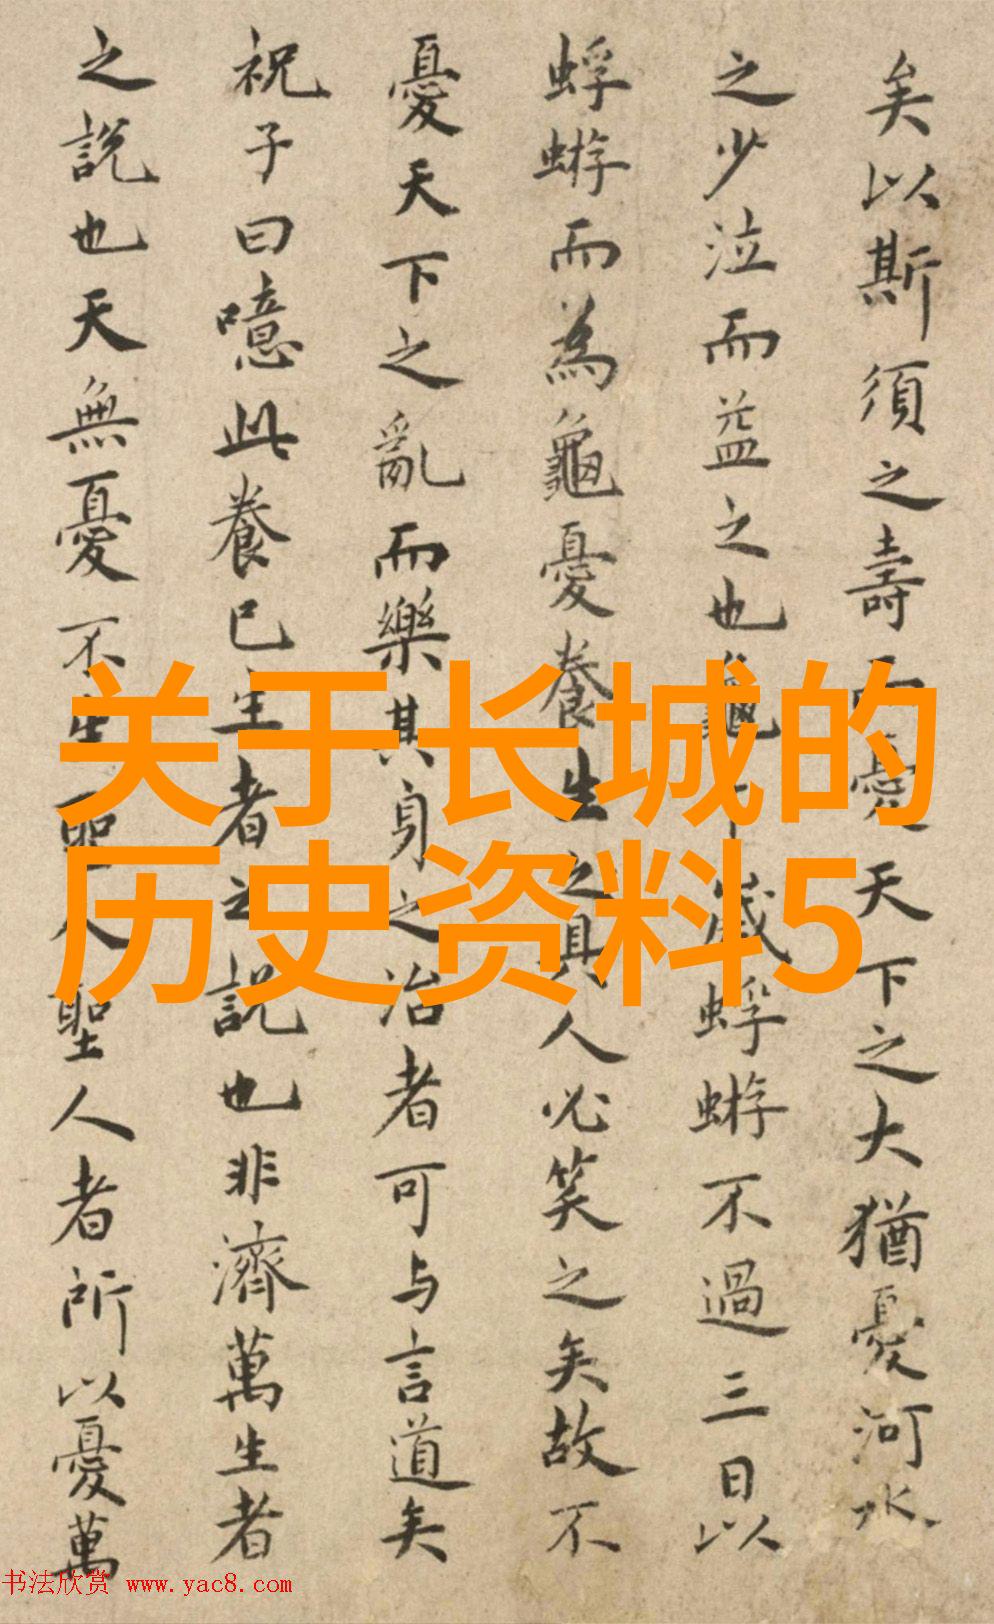 矣以斯須之壽而憂天下之大猶憂河水
之少泣而益之也龜千歲蜉蝣不過三日以
蜉蝣而為龜憂養生之具人必笑之矣故不
憂天下之亂而樂其身之治者可与言道矣
祝子曰噫此養己生者之説也非濟萬生者
之説也天無憂不生聖人聖人者所以憂萬
关于长城的
历史资料5
书法欣赏 www.yac8.com